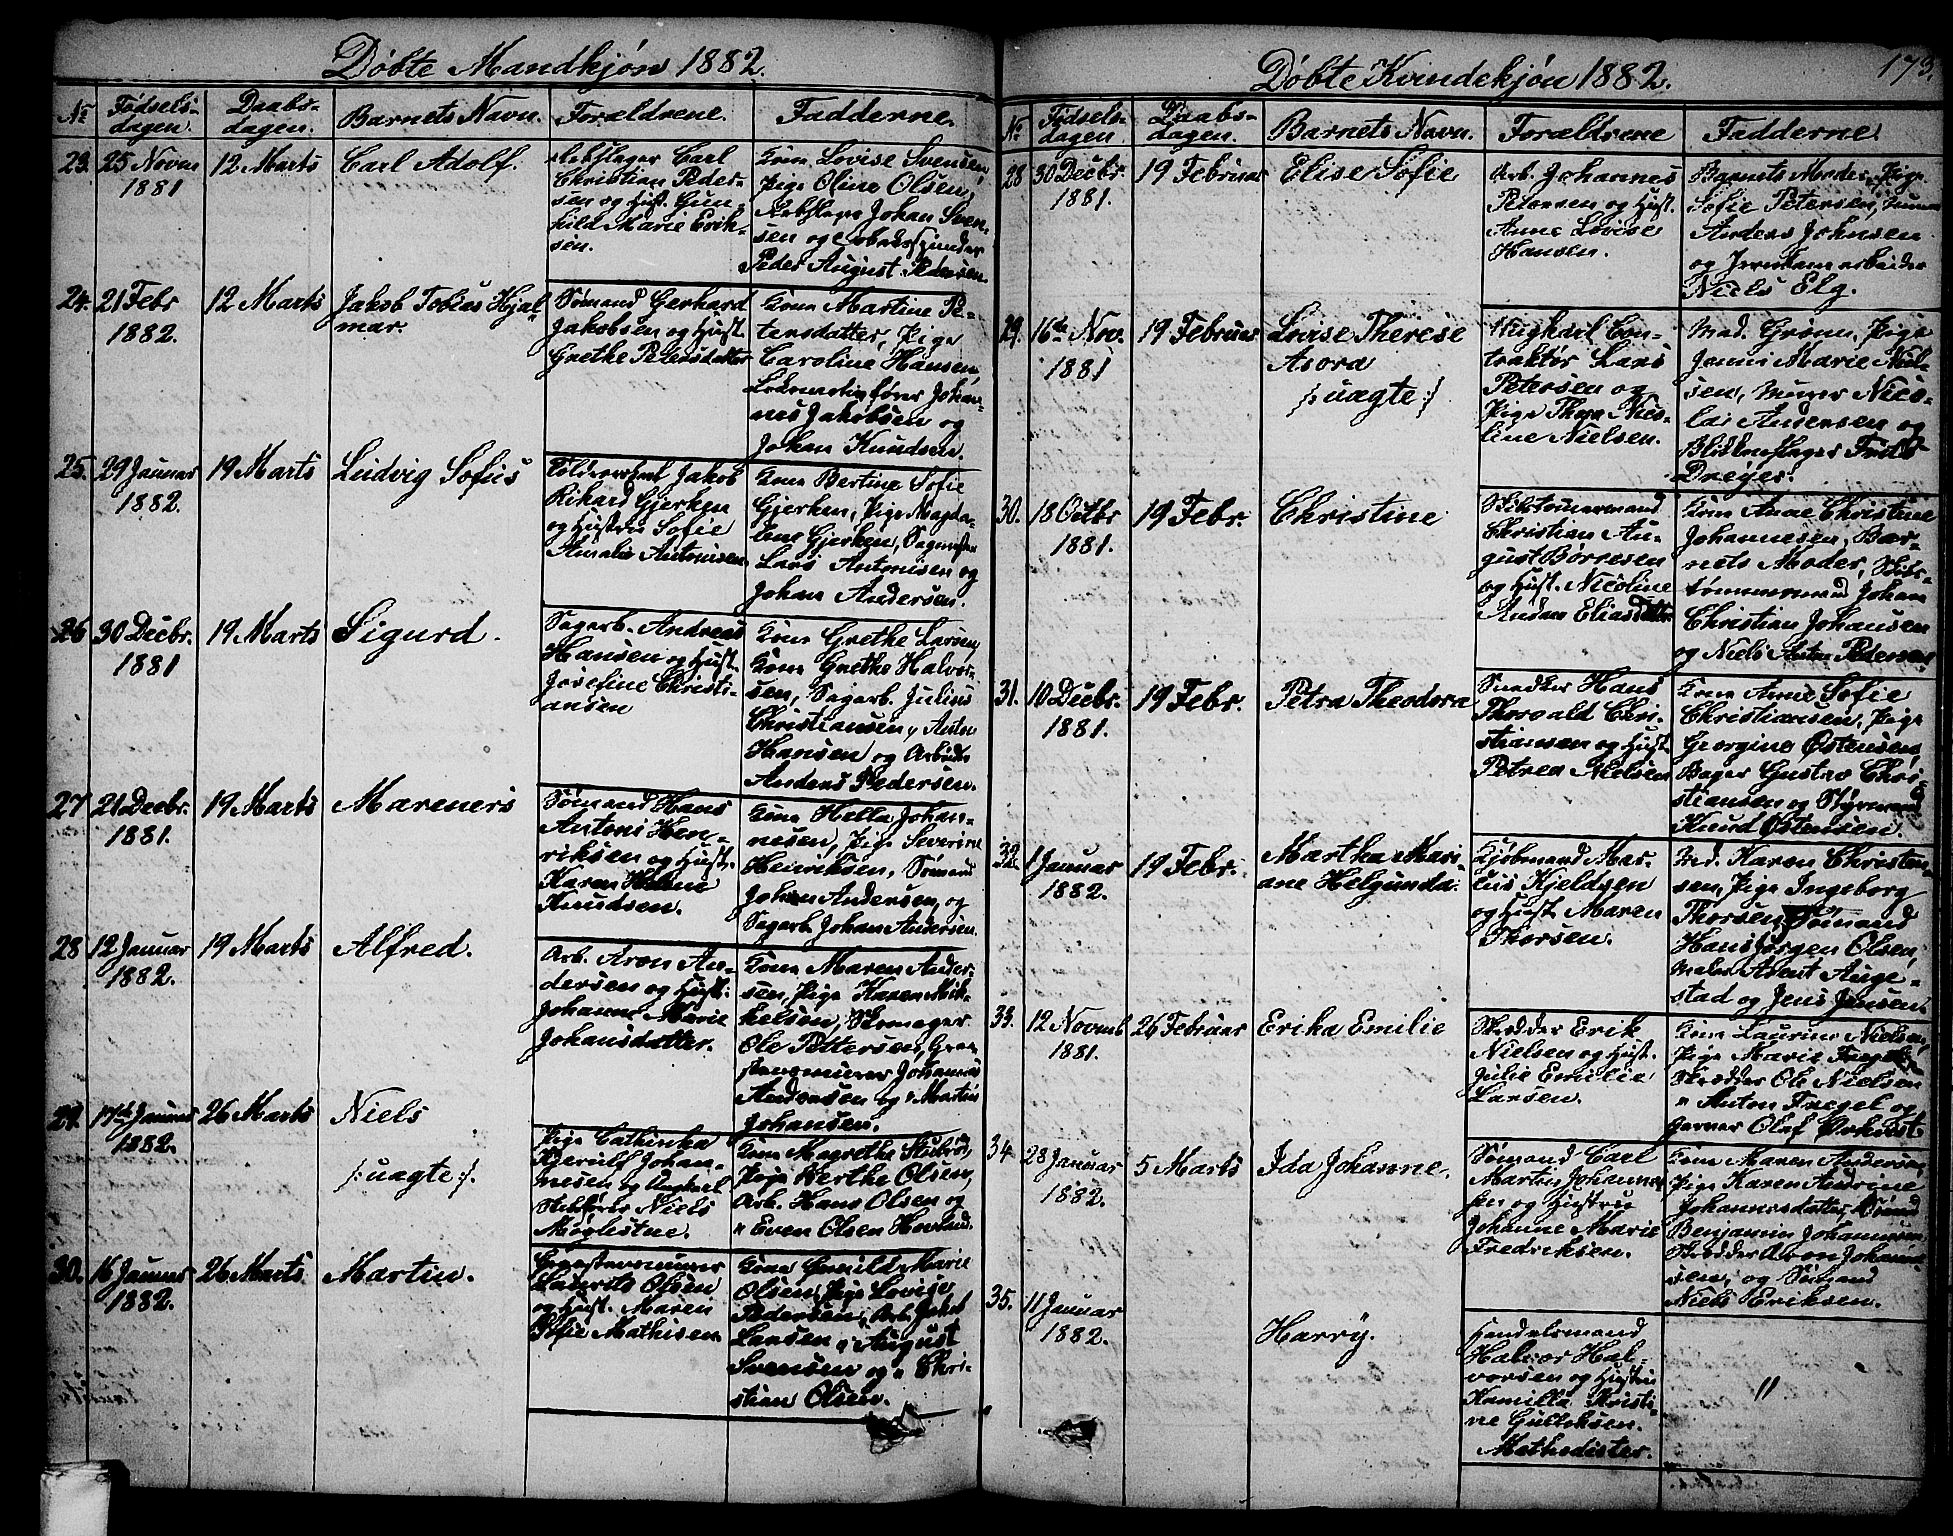 Døbte Mandkjøn 1882.
No Fødselsdagen. Daabsdagen. Barnets Navn. Forældrene. Fadderne.
23. 25 Novm 1881 12 Marts Carl Adolf.
Rebslager Carl
Christian Peder-
sen og Hust. Gun-
hild Marie Erik-
sen.
Kone Lovise Svensen,
Pige Oline Olsen,
Rebslager Johan Sven-
sen og
Peder August Pedersen.
24. 21 Febr 1882. 12 Marts Jakob Tobias Hjal-
mar.
Sømand Gerhard
Jakobsen og Hust.
Grethe Petersdatter
Kone Martine Pe-
tersdatter, Pige
Caroline Hansen,
Lokomotivfører Johan-
nes Jakobsen og
Johan Knudsen.
25. 29 Januar 1882. 19 Marts Ludvig Sofus
Jakob
Rikard Gjerken
og Hustru Sofie
Amalie Antonisen
Kone Bertine Sofie
Gjerken, Pige Magda-
lene Gjerken, Sagmester
Lars Antonisen og
Johan Andersen.
26 30 Decbr. 1881 19 Marts Sigurd.
Sagarb. Andreas
Hansen og Hust.
Josefine Christi-
ansen
Kone Grethe Larsen,
Kone Grethe Halvor-
sen, Sagarb. Julius
Christiansen, Anton
Hansen og Arbeider
Anders Pedersen.
27 21 Decbr. 1881. 19 Marts Mareneus
Sømand Hans
Antoni Hen-
riksen og Hust.
Karen Helene
Knudsen.
Kone Hella Johan-
nesen, Pige Severine
Henriksen, Sømand
Johan Andersen, og
Sagarb. Johan Andersen.
28 12 Januar 1882. 19 Marts Alfred.
Arb. Aron An-
dersen og Hust.
Johanne Marie
Johansdatter.
Kone Maren Ander-
sen, Pige Karen Mik-
kelsen, Skomager
Ole Pettersen, Gra-
Johannes
Andersen og " Martin
Johansen.
29. 17de Januar 1882. 26 Marts Niels
/: uagte :/.
Pige Cathinka
Kjerulf Johan-
nesen og Ungkarl
Niels
Kone Magrethe
Pige Berthe Olsen,
Arb. Hans Olsen og
" Even Olsen
30. 16 Januar 1882. 26 Marts Martin.
Laurits Olsen
og Hust. Maren
Sofie Mathisen
Kone Gunild Marie
Olsen, Pige Lovise
Pedersen, Arb. Jakob
Larsen, " August
Svensen og " Chri-
stian Olsen.
Døbte Kvindekjøn 1882. 173.
No Fødselsdagen. Daabsdagen. Barnets Navn. Forældrene Fadderne
28 30 Decbr. 1881. 19 Februar Elise Sofie
Arb. Johannes
Petersen og Hust.
Anne Lovise
Hansen.
Barnets Moder, Pige
Sofie Petersen,
Anders Johnsen
og Jernbanearbeider
Niels Elg.
29. 16de Nov. 1881 19 Februar Lovise Therese
Asora
/: uagte :/
Ungkarl Con-
traktør Lars
Petersen og
Pige Thora Nico-
line Nielsen.
Mad. Grønn, Pige
Jenni Marie Niel-
sen, Murer Nico-
lai Andersen og
Blikkenslager Fredr.
Dreyer.
30. 18 Octbr 1881. 19 Febr. Christine
Skibstømmermand
Christian Au-
gust Børresen
og Hust. Nicoline
Andrea Eliasdatter
Kone Anne Christine
Johannesen, Bar-
nets Moder, Skibs-
tømmermand Johan
Christian Johansen
og Niels Anton Pedersen
31. 10 Decbr. 1881. 19 Febr. Petra Theodora
Snedker Hans
Thorvald Chri-
stiansen og Hust.
Petrea Nielsen
Kone Anne Sofie
Christiansen, Pige
Georgine Østensen,
Bager Gustav Chri-
stiansen og Styrmand
Knud Østensen.
32. 1 Januar 1882. 19 Febr. Martha Mari-
ane Helgunda.
Kjøbmand Mar-
cus Kjeldsen
og Hust. Maren
Thorsen.
Mad. Karen Christen-
sen, Pige Ingeborg
Thorsen, Sømand
Hans Jørgen Olsen,
Maler Age-
stad og Jens Jensen.
33. 12 Novmb 1881. 26 Februar Erika Emilie
Skrædder Erik
Nielsen og Hust.
Julie Emilie
Larsen.
Kone Laurine Nielsen,
Pige Marie Fregel,
Skrædder Ole Nielsen
" Anton Fregel og
Garver Olaf Ørkvist.
34. 28 Januar 1882. 5 Marts Ida Johanne.
Sømand Carl
Martin Johannes-
sen og Hustru
Johanne Marie
Fredriksen.
Kone Maren Andersen,
Pige Karen Andrine
Johannesdatter, Sømand
Benjamin Johannesen,
Skrædder Aron Johanne-
sen, og Sømand
Niels Eriksen.
35. 11 Januar 1882. Harry.
Handelsmand
Halvor Hal-
vorsen og Hustru
Kamilla Kristi-
ne Gulliksen.
Methodister.
"